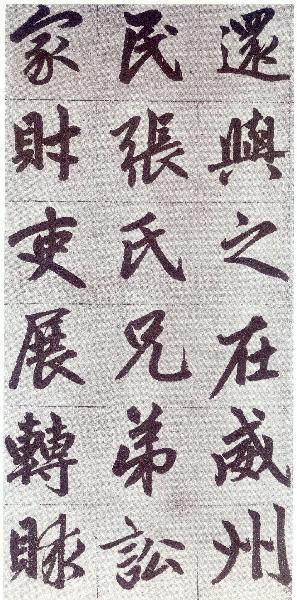 還與之在威州
民張氏兄弟訟
家財吏展轉賕